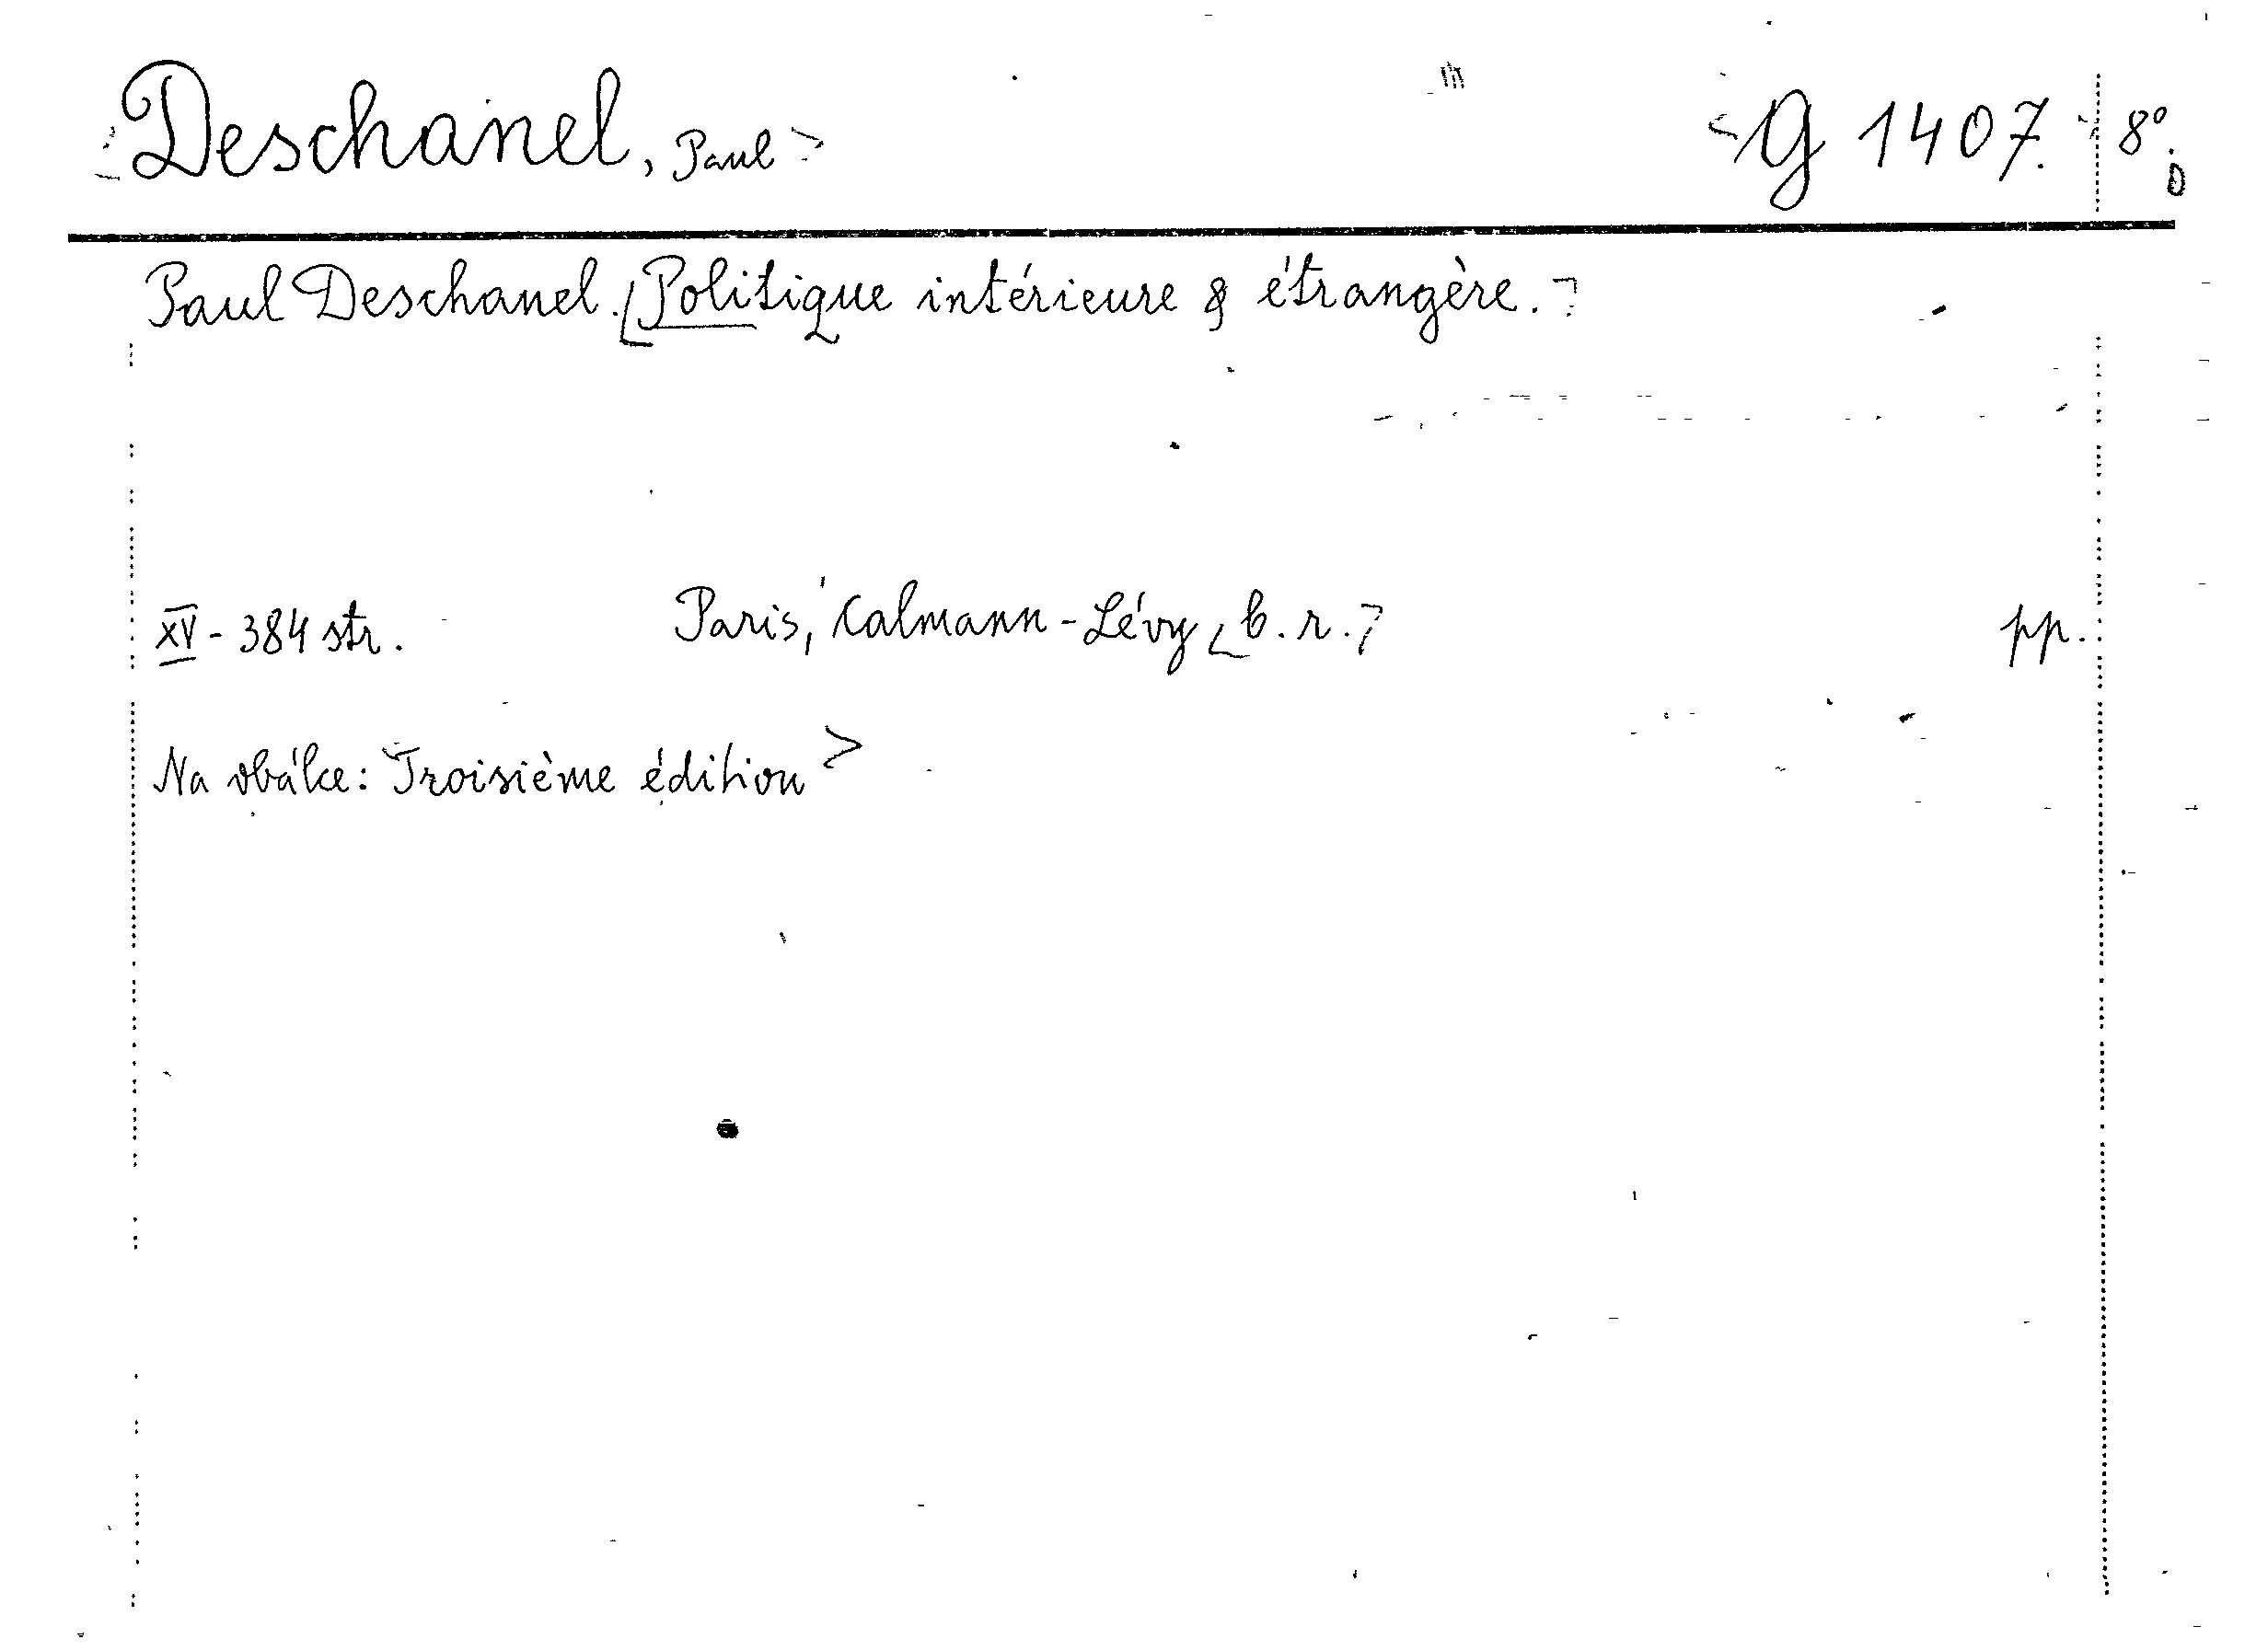 Deschanel, Paul G 1407. 8°.
Paul Deschanel. [Politique intérieure & étrangère.]
XV - 384 str. Paris, Calmann-Lévy [b. r.] pp.
Na obálce: Troisième édition